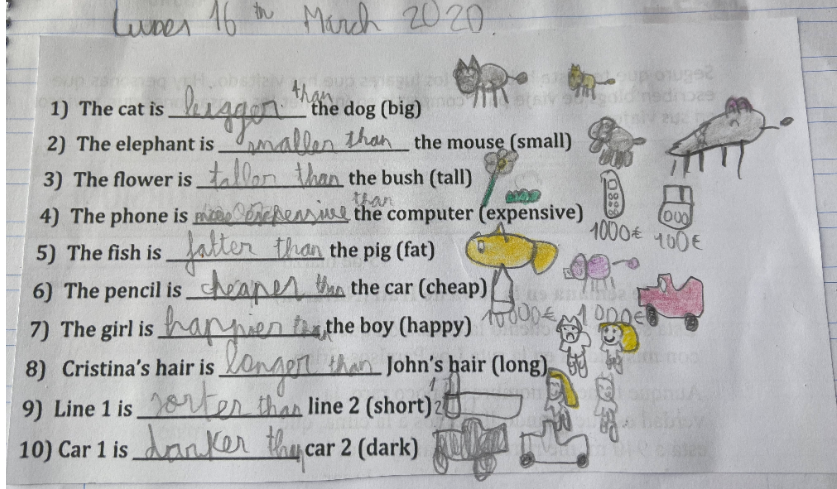 Lunes 16 th March 2020
1) The cat is bigger than the dog (big)
2) The elephant is smaller than the mouse (small)
3) The flower is taller than the bush (tall)
4) The phone is more expensive than the computer (expensive)
1000€ 100€
5) The fish is fatter than the pig (fat)
6) The pencil is cheaper than the car (cheap)
10000€ 1000€
7) The girl is happier than the boy (happy)
8) Cristina's hair is longer than John's hair (long)
9) Line 1 is sorter than line 2 (short) 1 2
10) Car 1 is darker than car 2 (dark)